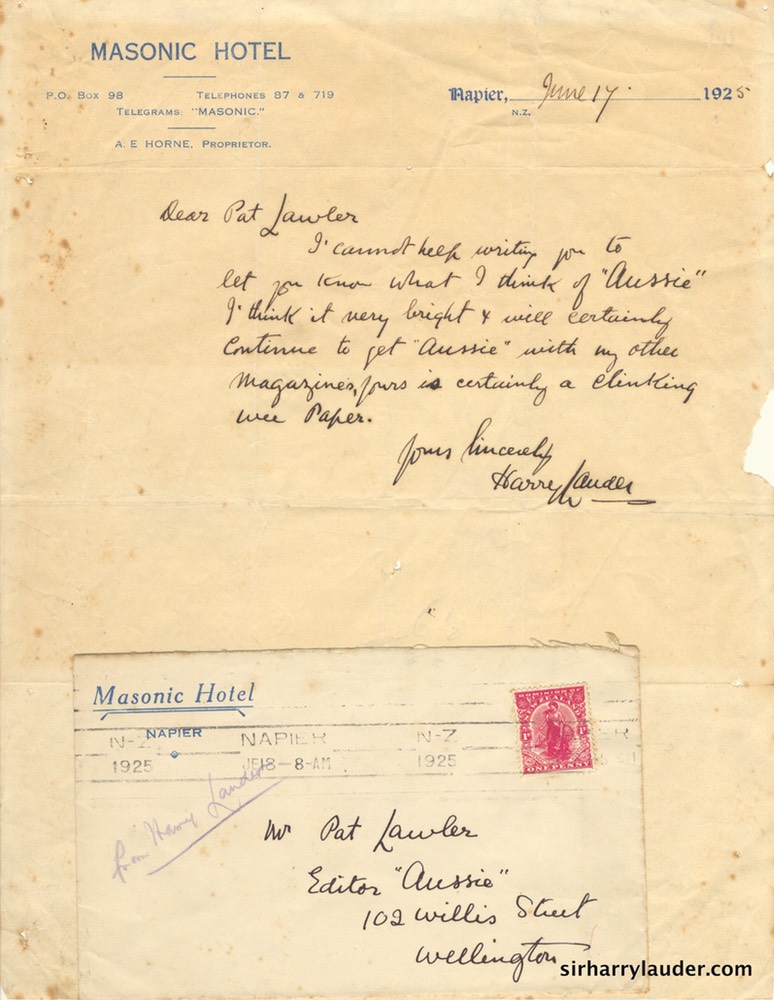 MASONIC HOTEL
P.O. Box 98 Telephones 87 & 719
Telegrams: "MASONIC."
A. E HORNE, Proprietor.
Napier, June 17. 1925
N.Z.
Dear Pat Lawler
I cannot help writing you to
let you know what I think of "Aussie"
I think it very bright & will certainly
Continue to get "Aussie" with my other
Magazines, yours is certainly a Clinking
wee Paper.
Yours Sincerely
Harry Lauder
Masonic Hotel
NAPIER
N-Z NAPIER N-Z
1925 JE18—8-AM 1925
DOMINION OF
ZEALAND
1D 1D
ONE PENNY
from Harry Lauder
Mr Pat Lawler
Editor "Aussie"
102 Willis Street
Wellington
sirharrylauder.com